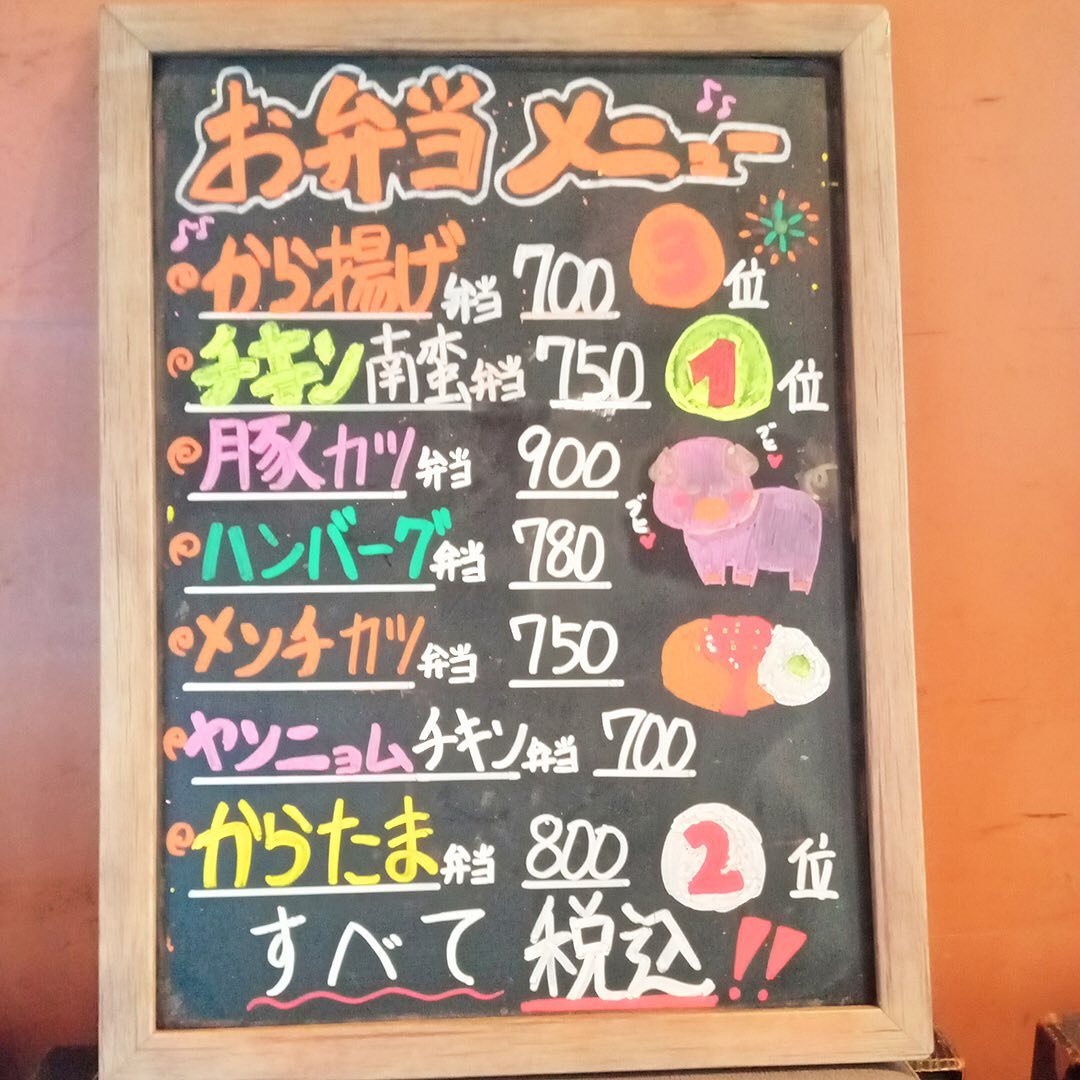 お弁当メニュー
から揚げ弁当 700 3位
チキン南蛮弁当 750 1位
豚カツ弁当 900
ブヒ
ブヒ
ハンバーグ弁当 780
メンチカツ弁当 750
ヤンニョムチキン弁当 700
からたま弁当 800 2位
すべて 税込!!